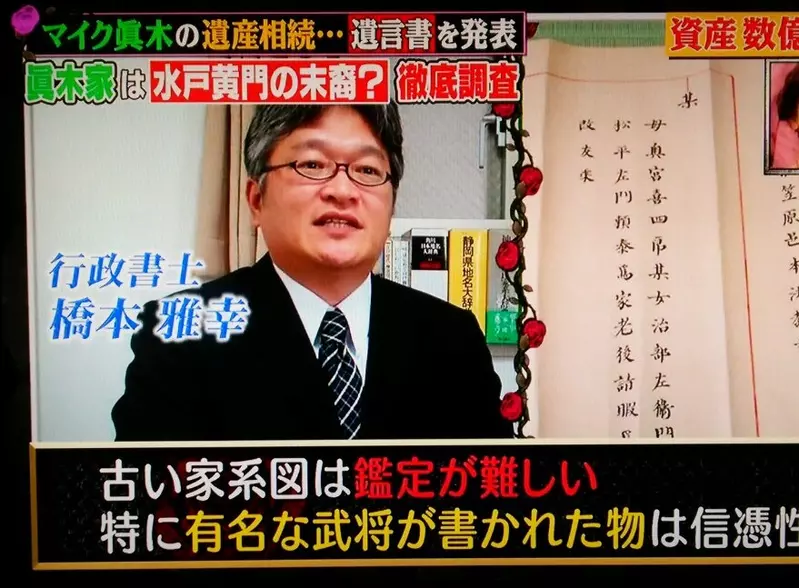 マイク眞木の遺産相続…遺言書を発表
資産数億
眞木家は水戸黄門の末裔?徹底調査
行政書士
橋本 雅幸
静岡県地名大辞
某
母奥宮喜四郎某女治部左衛門
松平左門頼泰為家老後請暇
改友米
古い家系図は鑑定が難しい
特に有名な武将が書かれた物は信憑性